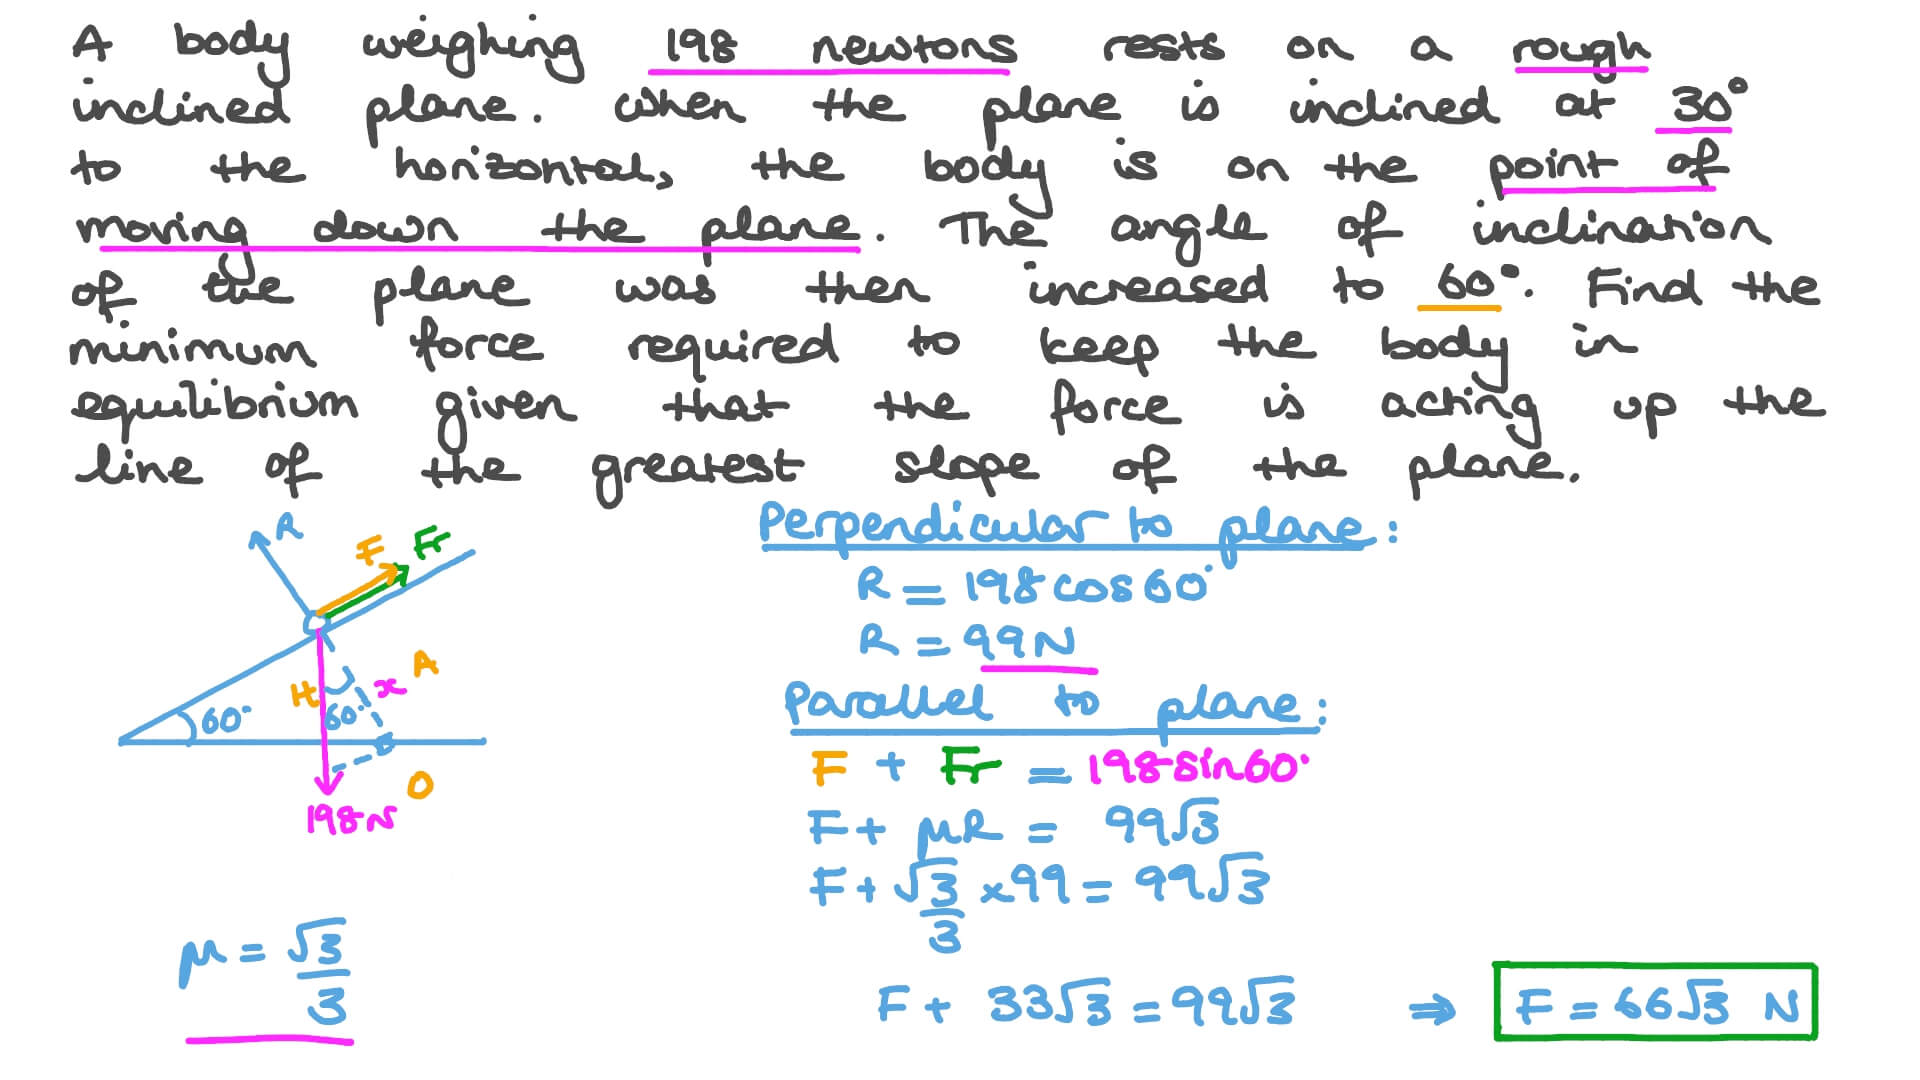 A body weighing 198 newtons rests on a rough
inclined plane. When the plane is inclined at 30°
to the horizontal, the body is on the point of
moving down the plane. The angle of inclination
of the plane was then increased to 60°. Find the
minimum force required to keep the body in
equilibrium given that the force is acting up the
line of the greatest slope of the plane.
R
F
Fr
H
x
A
60°
60°
O
198N
μ = √3/3
Perpendicular to plane:
R = 198 cos 60°
R = 99N
Parallel to plane:
F + Fr = 198 sin 60°
F + μR = 99√3
F + √3/3 × 99 = 99√3
F + 33√3 = 99√3 ⇒ F = 66√3 N